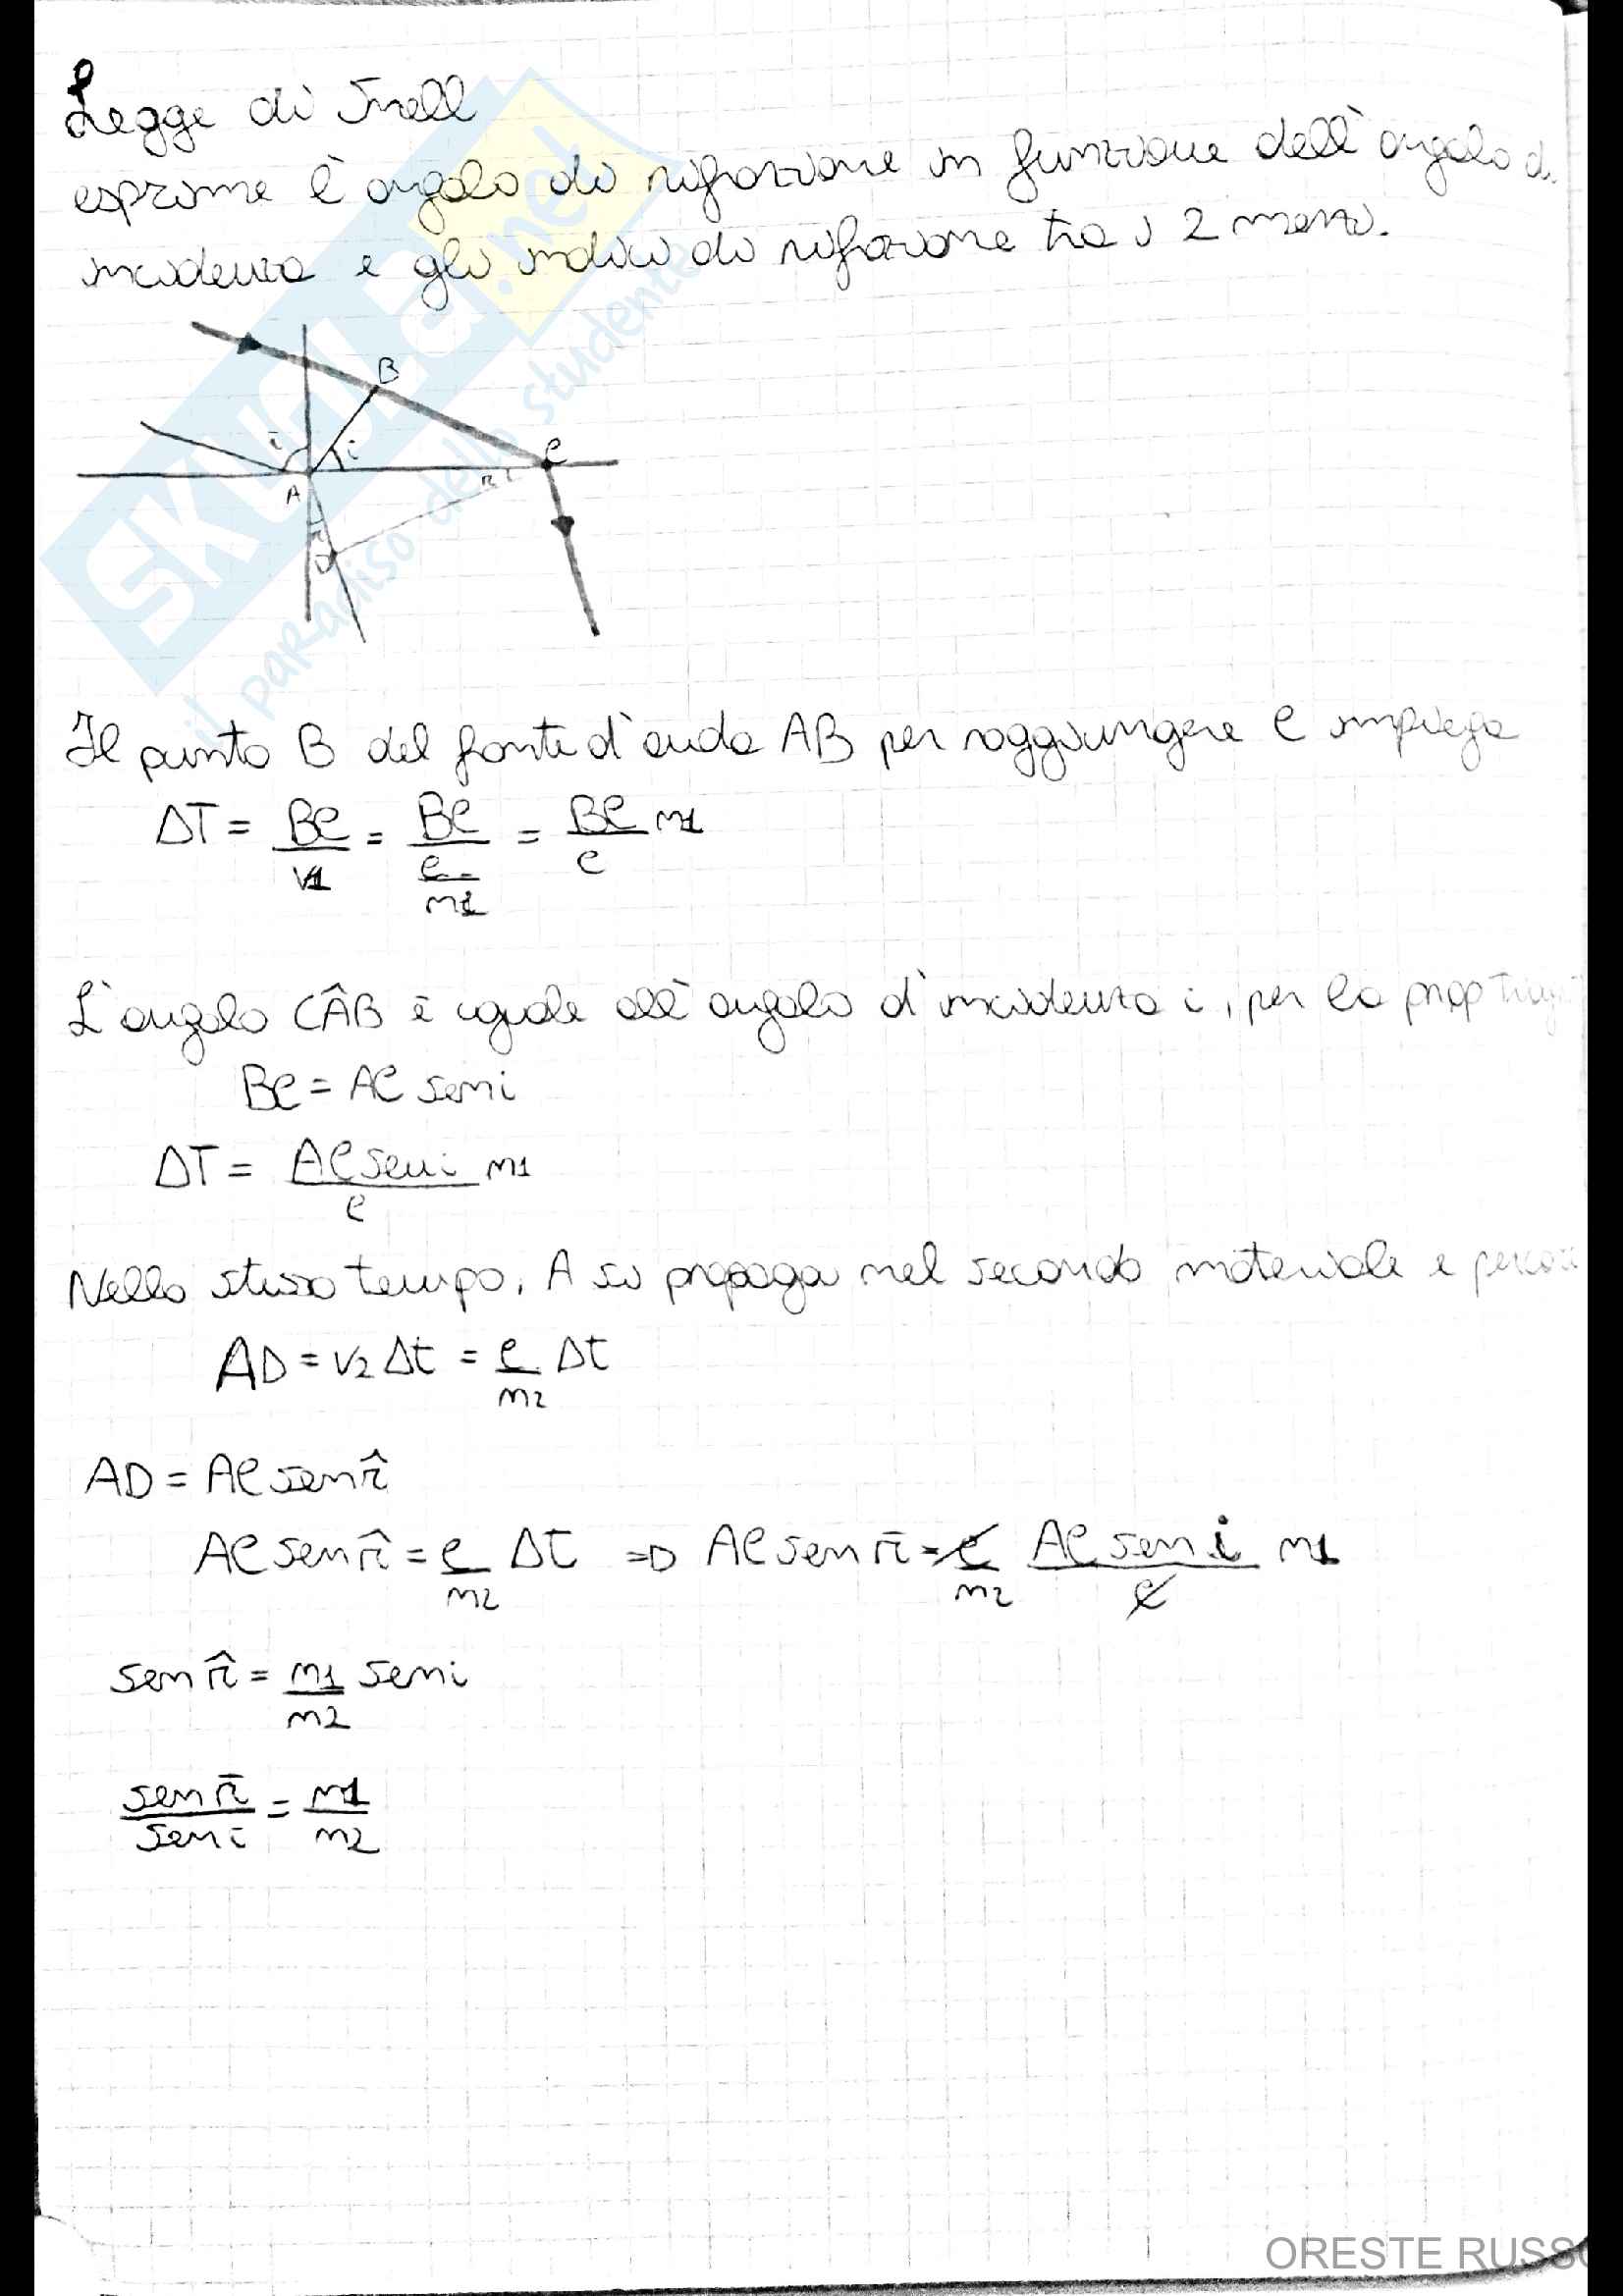 Legge di Snell
esprime l'angolo di rifrazione in funzione dell'angolo di
incidenza e gli indici di rifrazione tra i 2 mezzi.
B
i i C
A r
r
D
Il punto B del fronte d'onda AB per raggiungere C impiega
ΔT = BC/v1 = BC/(c/n1) = BC/c n1
L'angolo CÂB è uguale all'angolo d'incidenza i, per la prop
BC = AC sen i
ΔT = AC sen i/c n1
Nello stesso tempo, A si propaga nel secondo materiale e
AD = v2 Δt = c/n2 Δt
AD = AC sen r̂
AC sen r̂ = c/n2 Δt => AC sen r = c/n2 AC sen i/c n1
sen r̂ = n1/n2 sen i
sen r/sen i = n1/n2
SKUOLA.net
il paradiso dello studente
ORESTE RUSSO